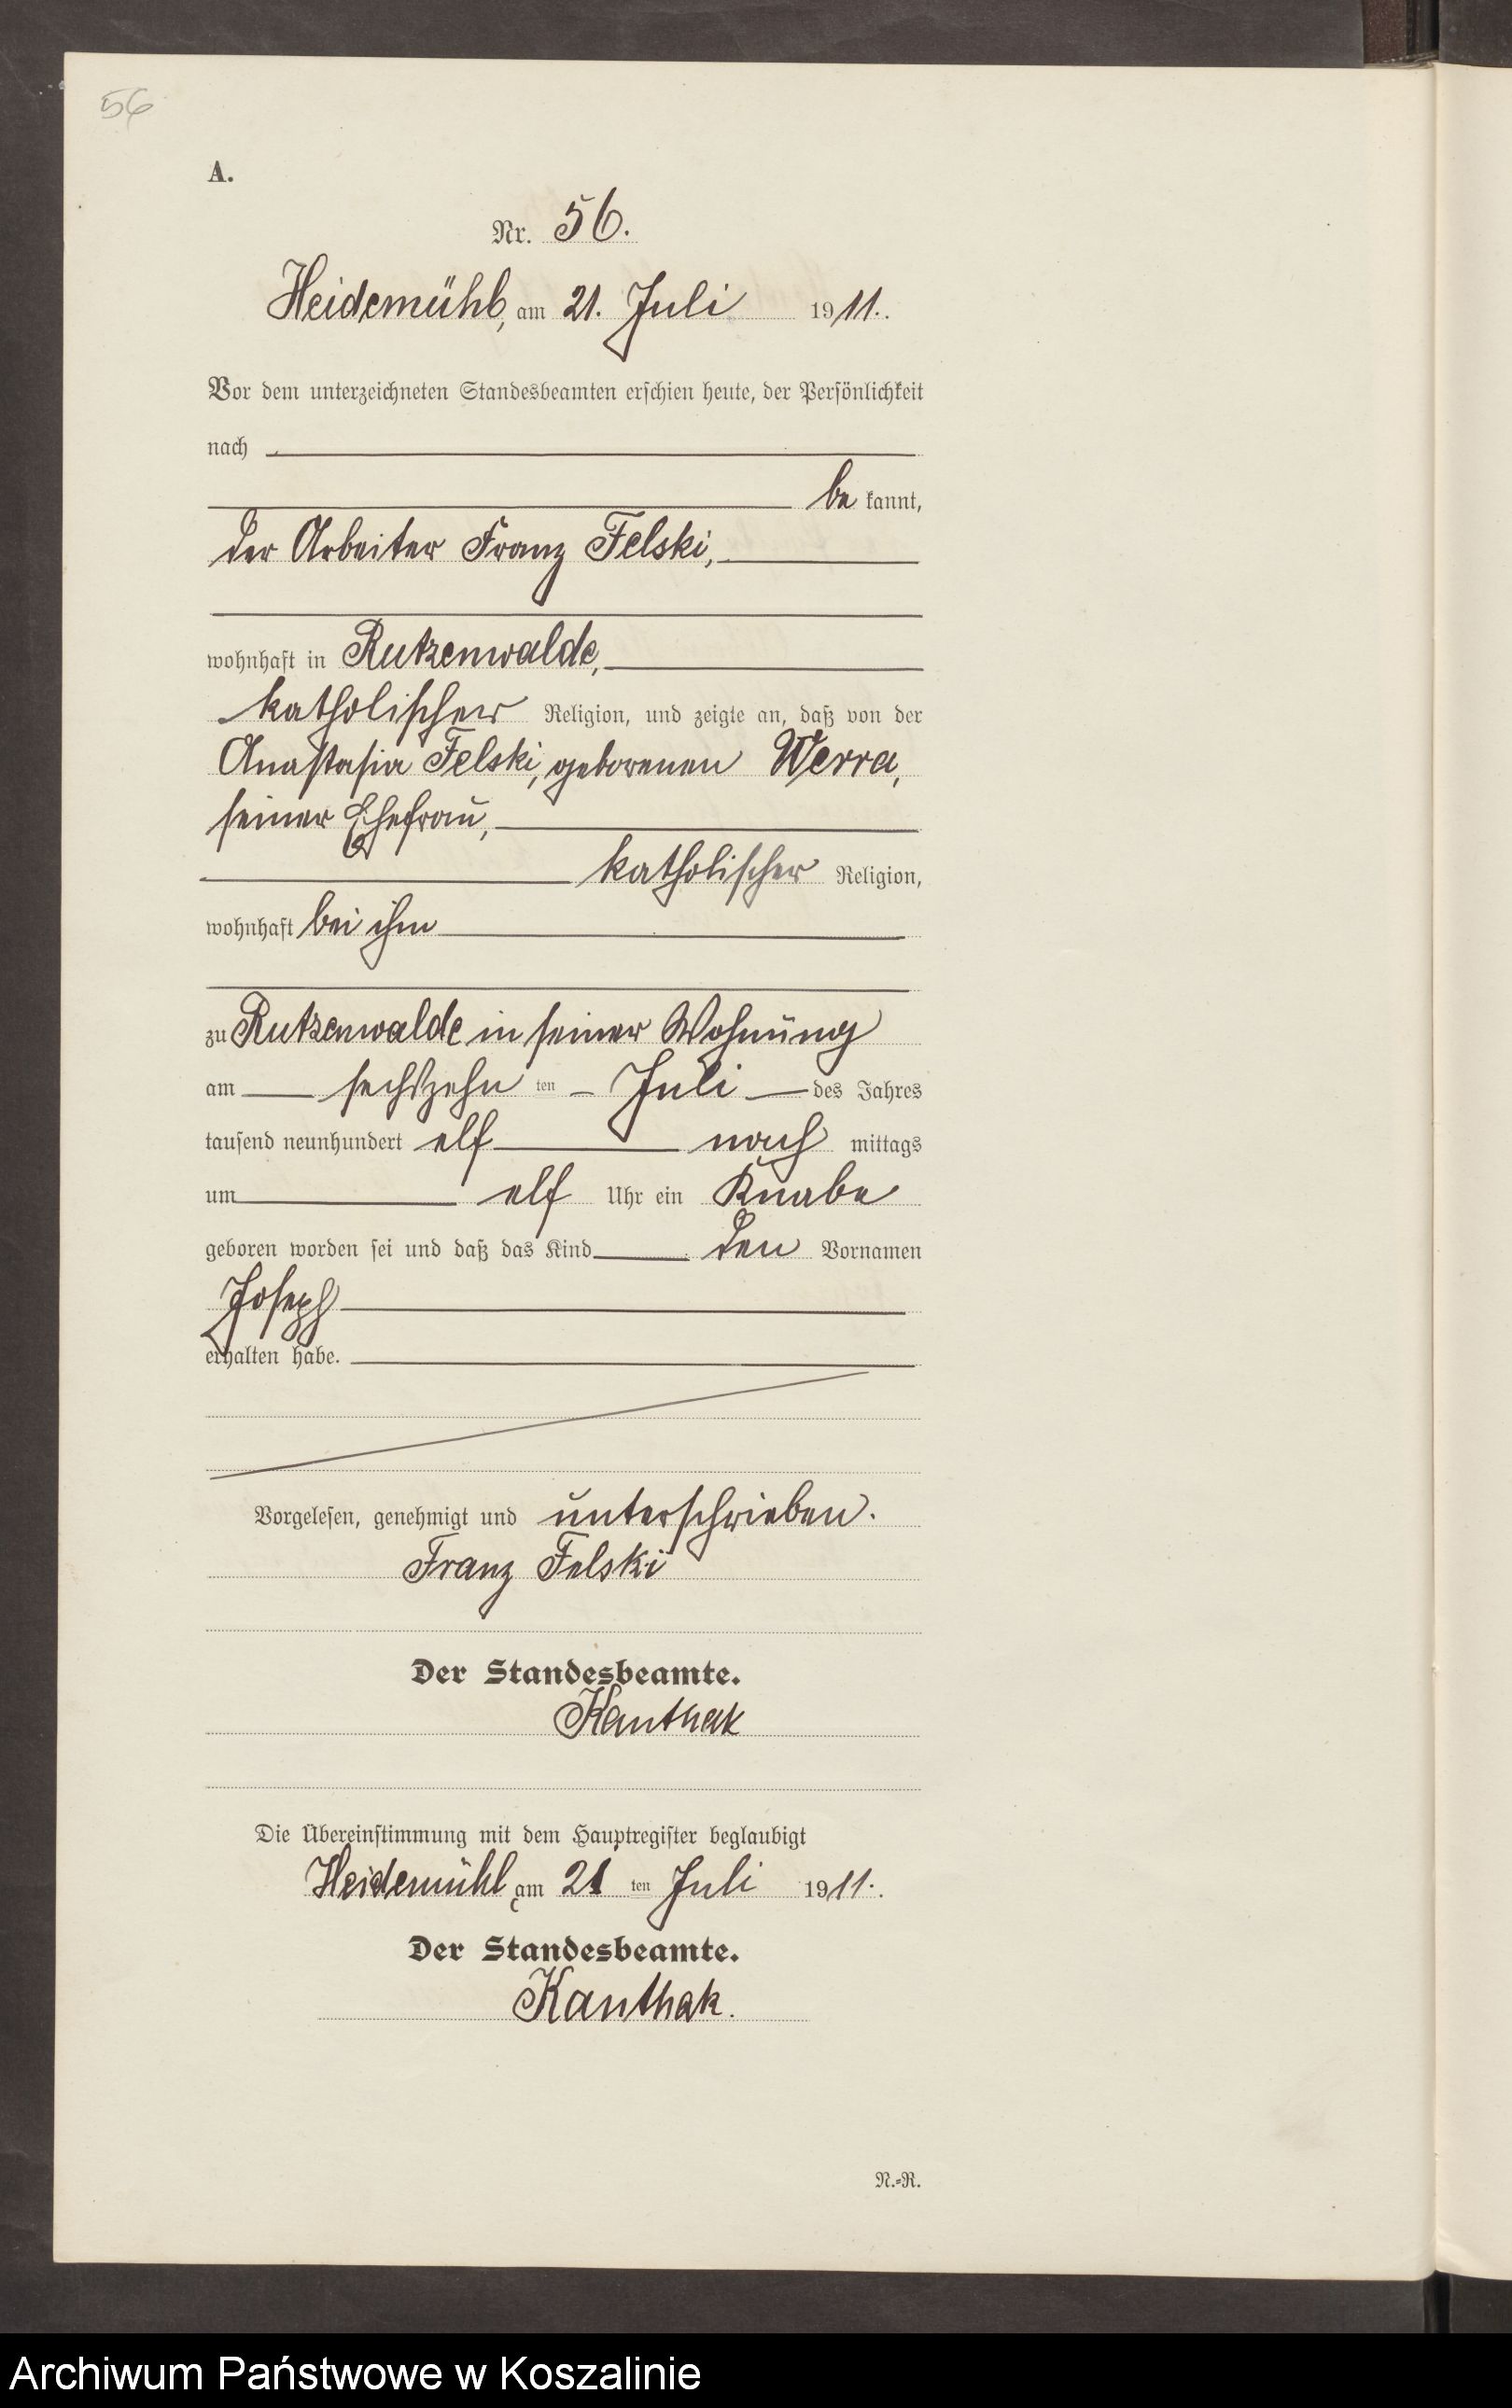 56
A.
Nr. 56.
Heidemühl, am 21. Juli 1911.
Vor dem unterzeichneten Standesbeamten erschien heute, der Persönlichkeit
nach
be kannt,
der Arbeiter Franz Felski,
wohnhaft in Rutzenwalde,
katholischer Religion, und zeigte an, daß von der
Anastasia Felski, geborenen Werra,
seiner Ehefrau,
katholischer Religion,
wohnhaft bei ihm
zu Rutzenwalde in seiner Wohnung
am sechszehn ten Juli des Jahres
tausend neunhundert elf nach mittags
um elf Uhr ein Knabe
geboren worden sei und daß das Kind den Vornamen
Joseph
erhalten habe.
Vorgelesen, genehmigt und unterschrieben.
Franz Felski
Der Standesbeamte.
Kanthak
Die Übereinstimmung mit dem Hauptregister beglaubigt
Heidemühl, am 21 ten Juli 1911.
Der Standesbeamte.
Kanthak.
N.=R.
Archiwum Państwowe w Koszalinie